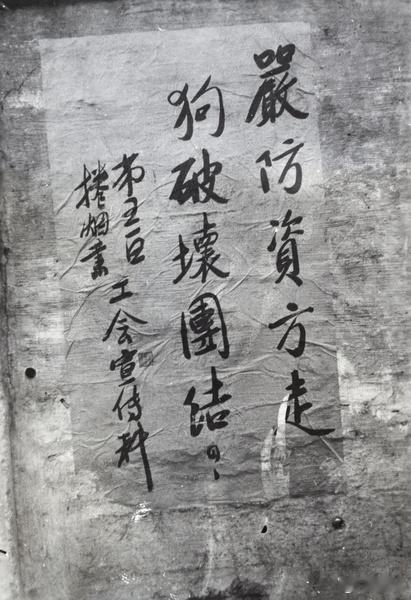 嚴防資方走
狗破壞團結。
第五区
捲烟業
工会宣傳科